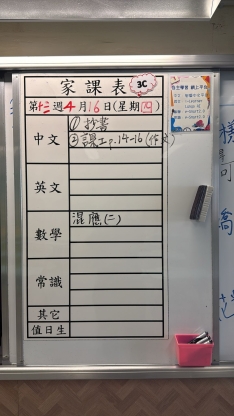 家課表 3C
第十三週4月16日(星期四)
中文
①抄書
②課工p.14-16(作文)
英文
數學
混應(二)
常識
其它
值日生